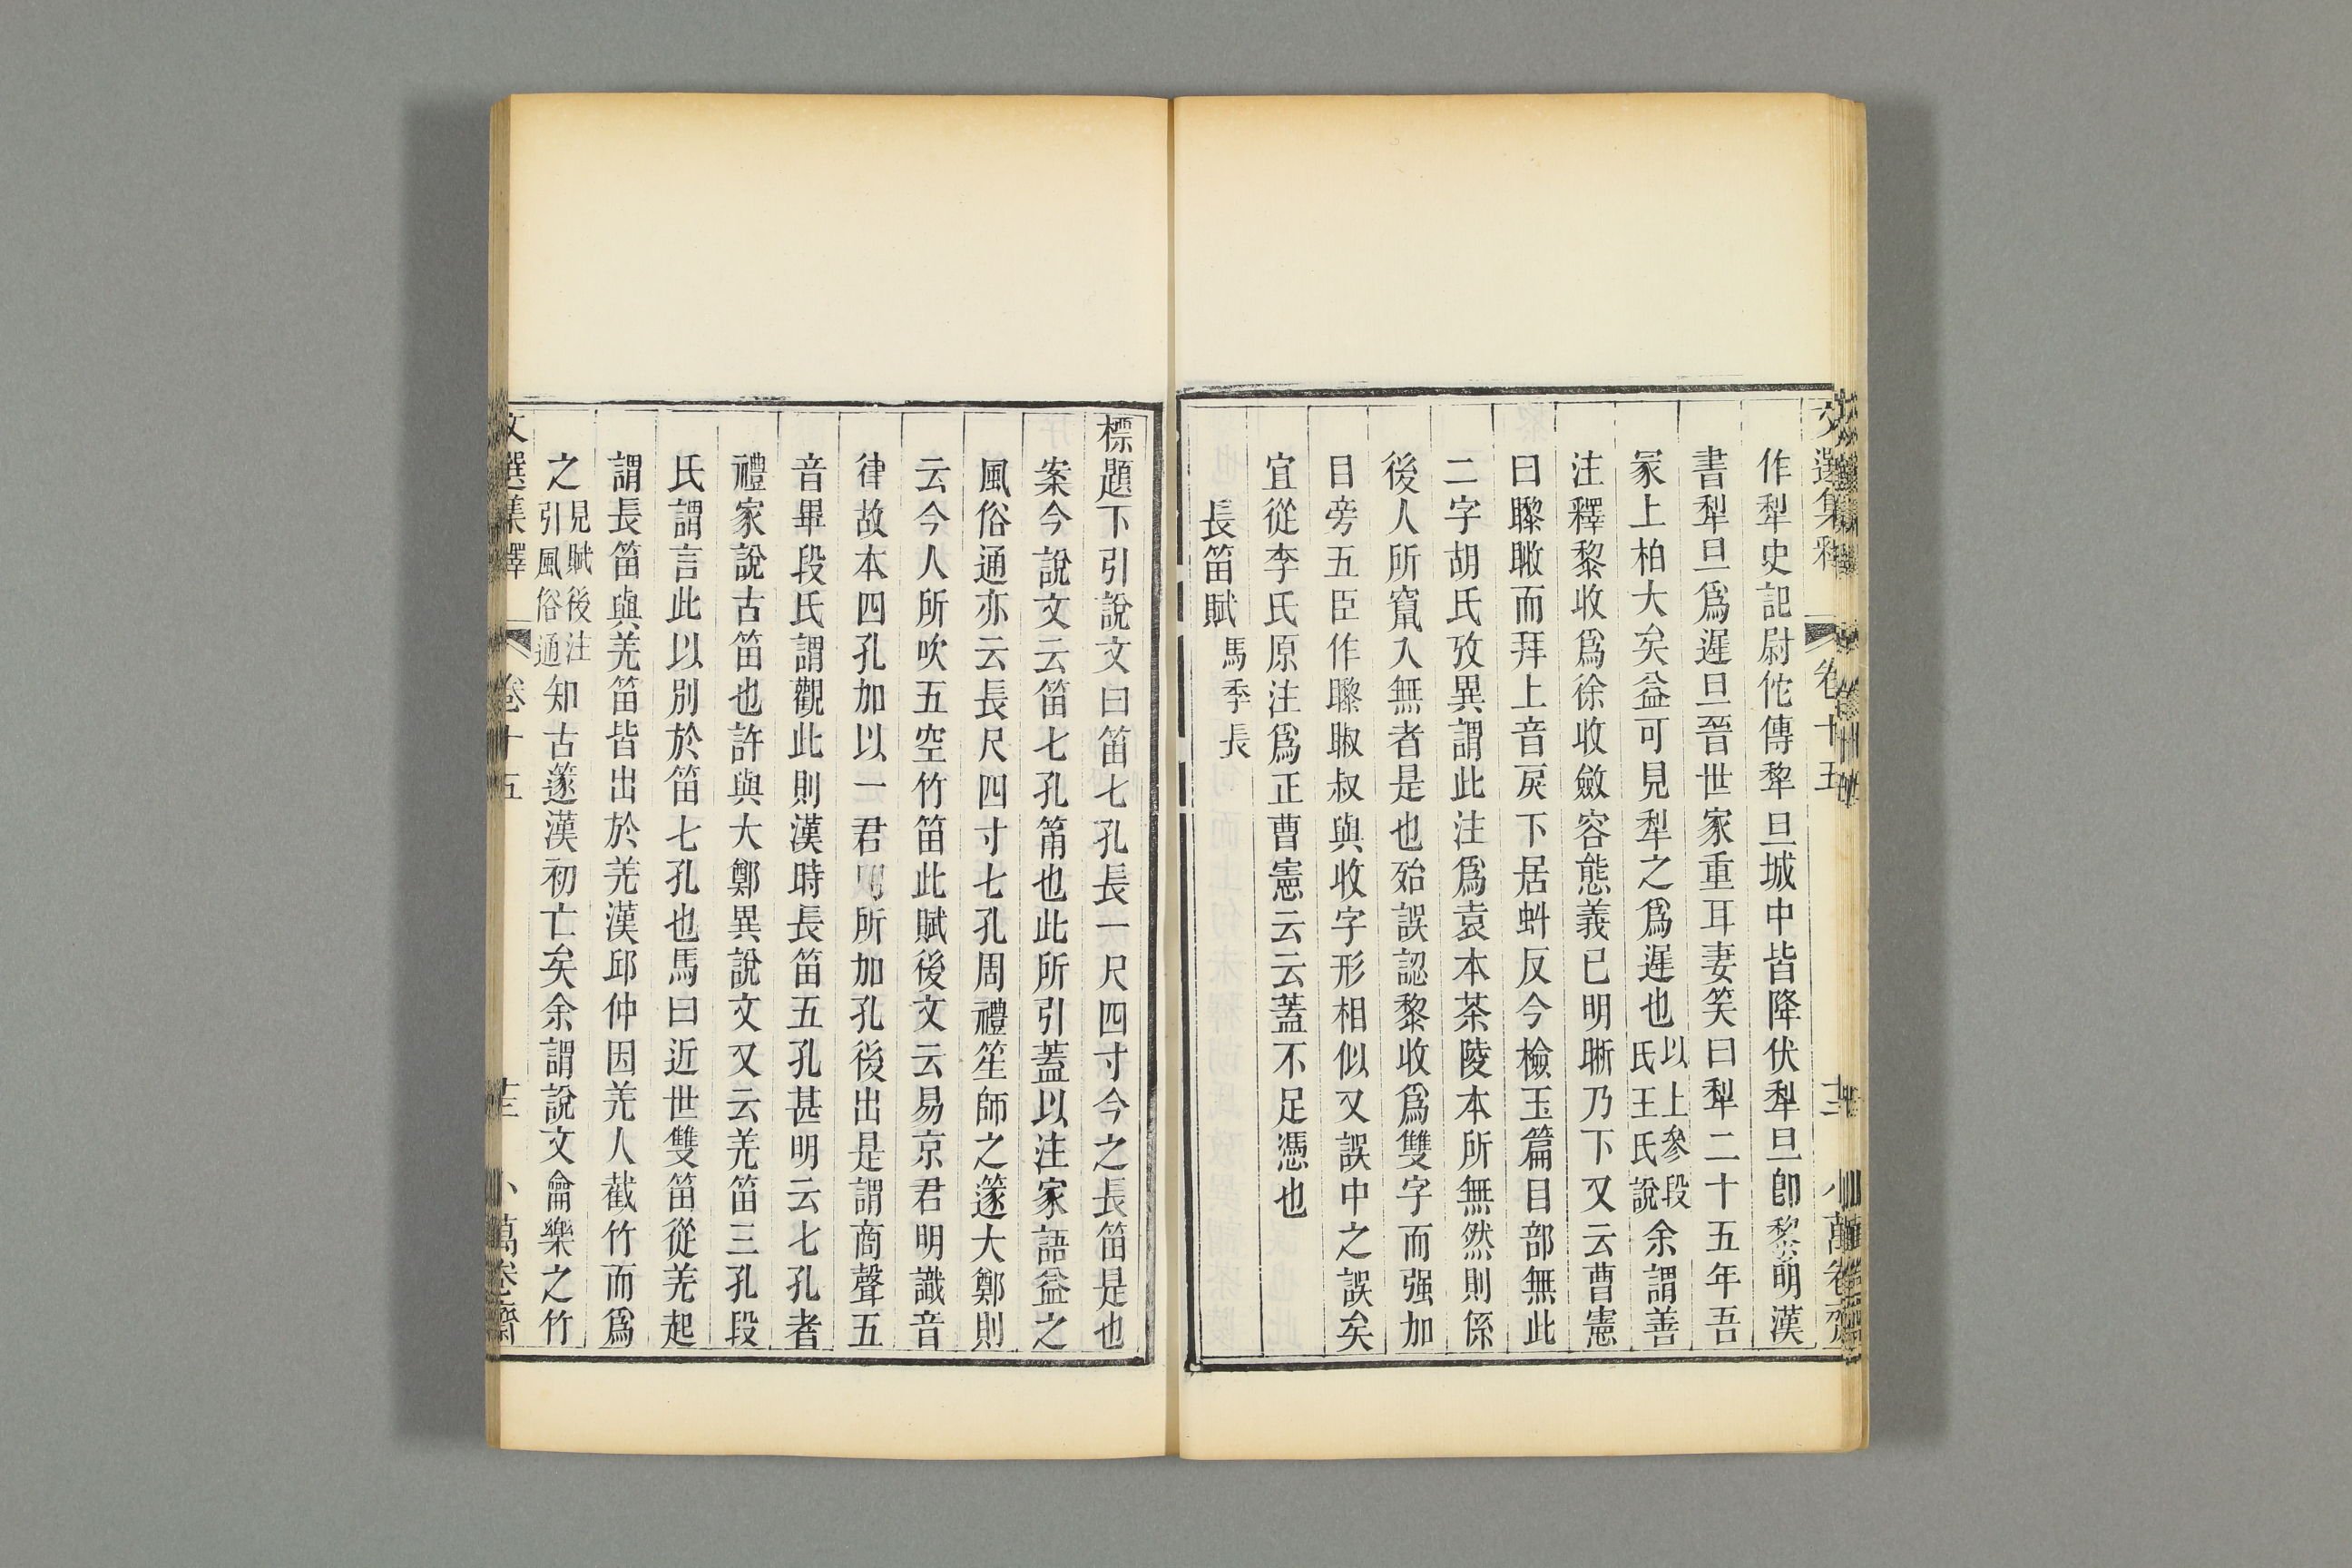 文選集釋 卷十五 十二 小萬卷齋
作犁史記尉佗傳犂旦城中皆降伏犁旦卽黎明漢
書犁旦爲遲旦晉世家重耳妻笑曰犁二十五年吾
冢上柏大矣益可見犁之爲遲也以上參段氏王氏說余謂善
注釋黎收爲徐收斂容態義已明晰乃下又云曹憲
曰䁐瞅而拜上音戾下居蚪反今檢玉篇目部無此
二字胡氏攷異謂此注爲袁本茶陵本所無然則係
後人所竄入無者是也殆誤認黎收爲雙字而强加
目旁五臣作䁐䏂叔與收字形相似又誤中之誤矣
宜從李氏原注爲正曹憲云云蓋不足憑也
長笛賦 馬季長
標題下引說文曰笛七孔長一尺四寸今之長笛是也
案今說文云笛七孔筩也此所引蓋以注家語益之
風俗通亦云長尺四寸七孔周禮笙師之篴大鄭則
云今人所吹五空竹笛此賦後文云易京君明識音
律故本四孔加以一君明所加孔後出是謂商聲五
音畢段氏謂觀此則漢時長笛五孔甚明云七孔者
禮家說古笛也許與大鄭異說文又云羌笛三孔段
氏謂言此以別於笛七孔也馬曰近世雙笛從羌起
謂長笛與羌笛皆出於羌漢邱仲因羌人截竹而爲
之見賦後注引風俗通知古篴漢初亡矣余謂說文龠樂之竹
文選集釋 卷十五 十三 小萬卷齋